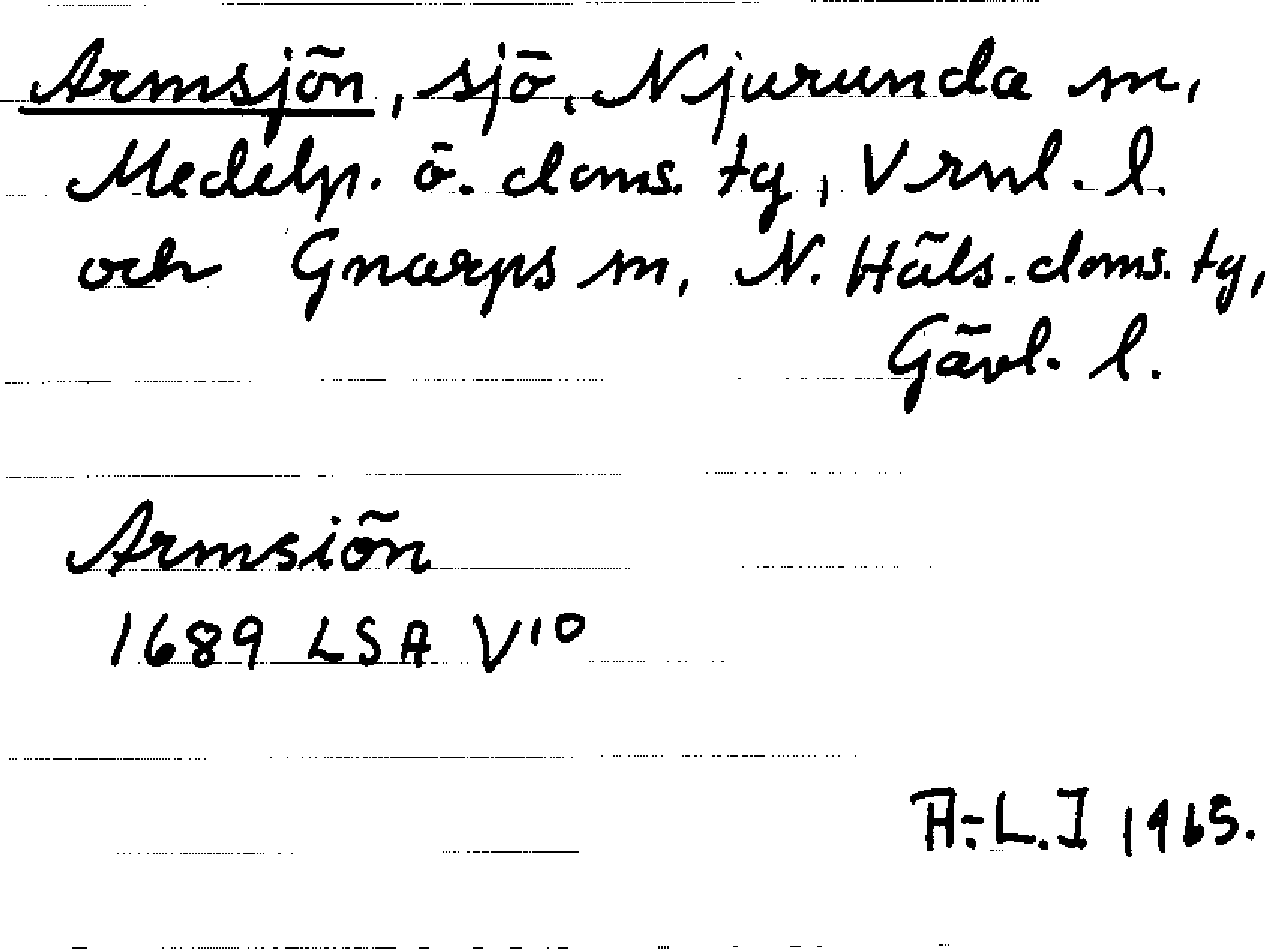 Armsjön, sjö, Njurunda sn,
Medelp. ö. doms. tg, Vrnl. l.
och Gnarps sn, N. Häls. doms. tg,
Gävl. l.
Armsiön
1689 LSA V10
A-L.I 1965.